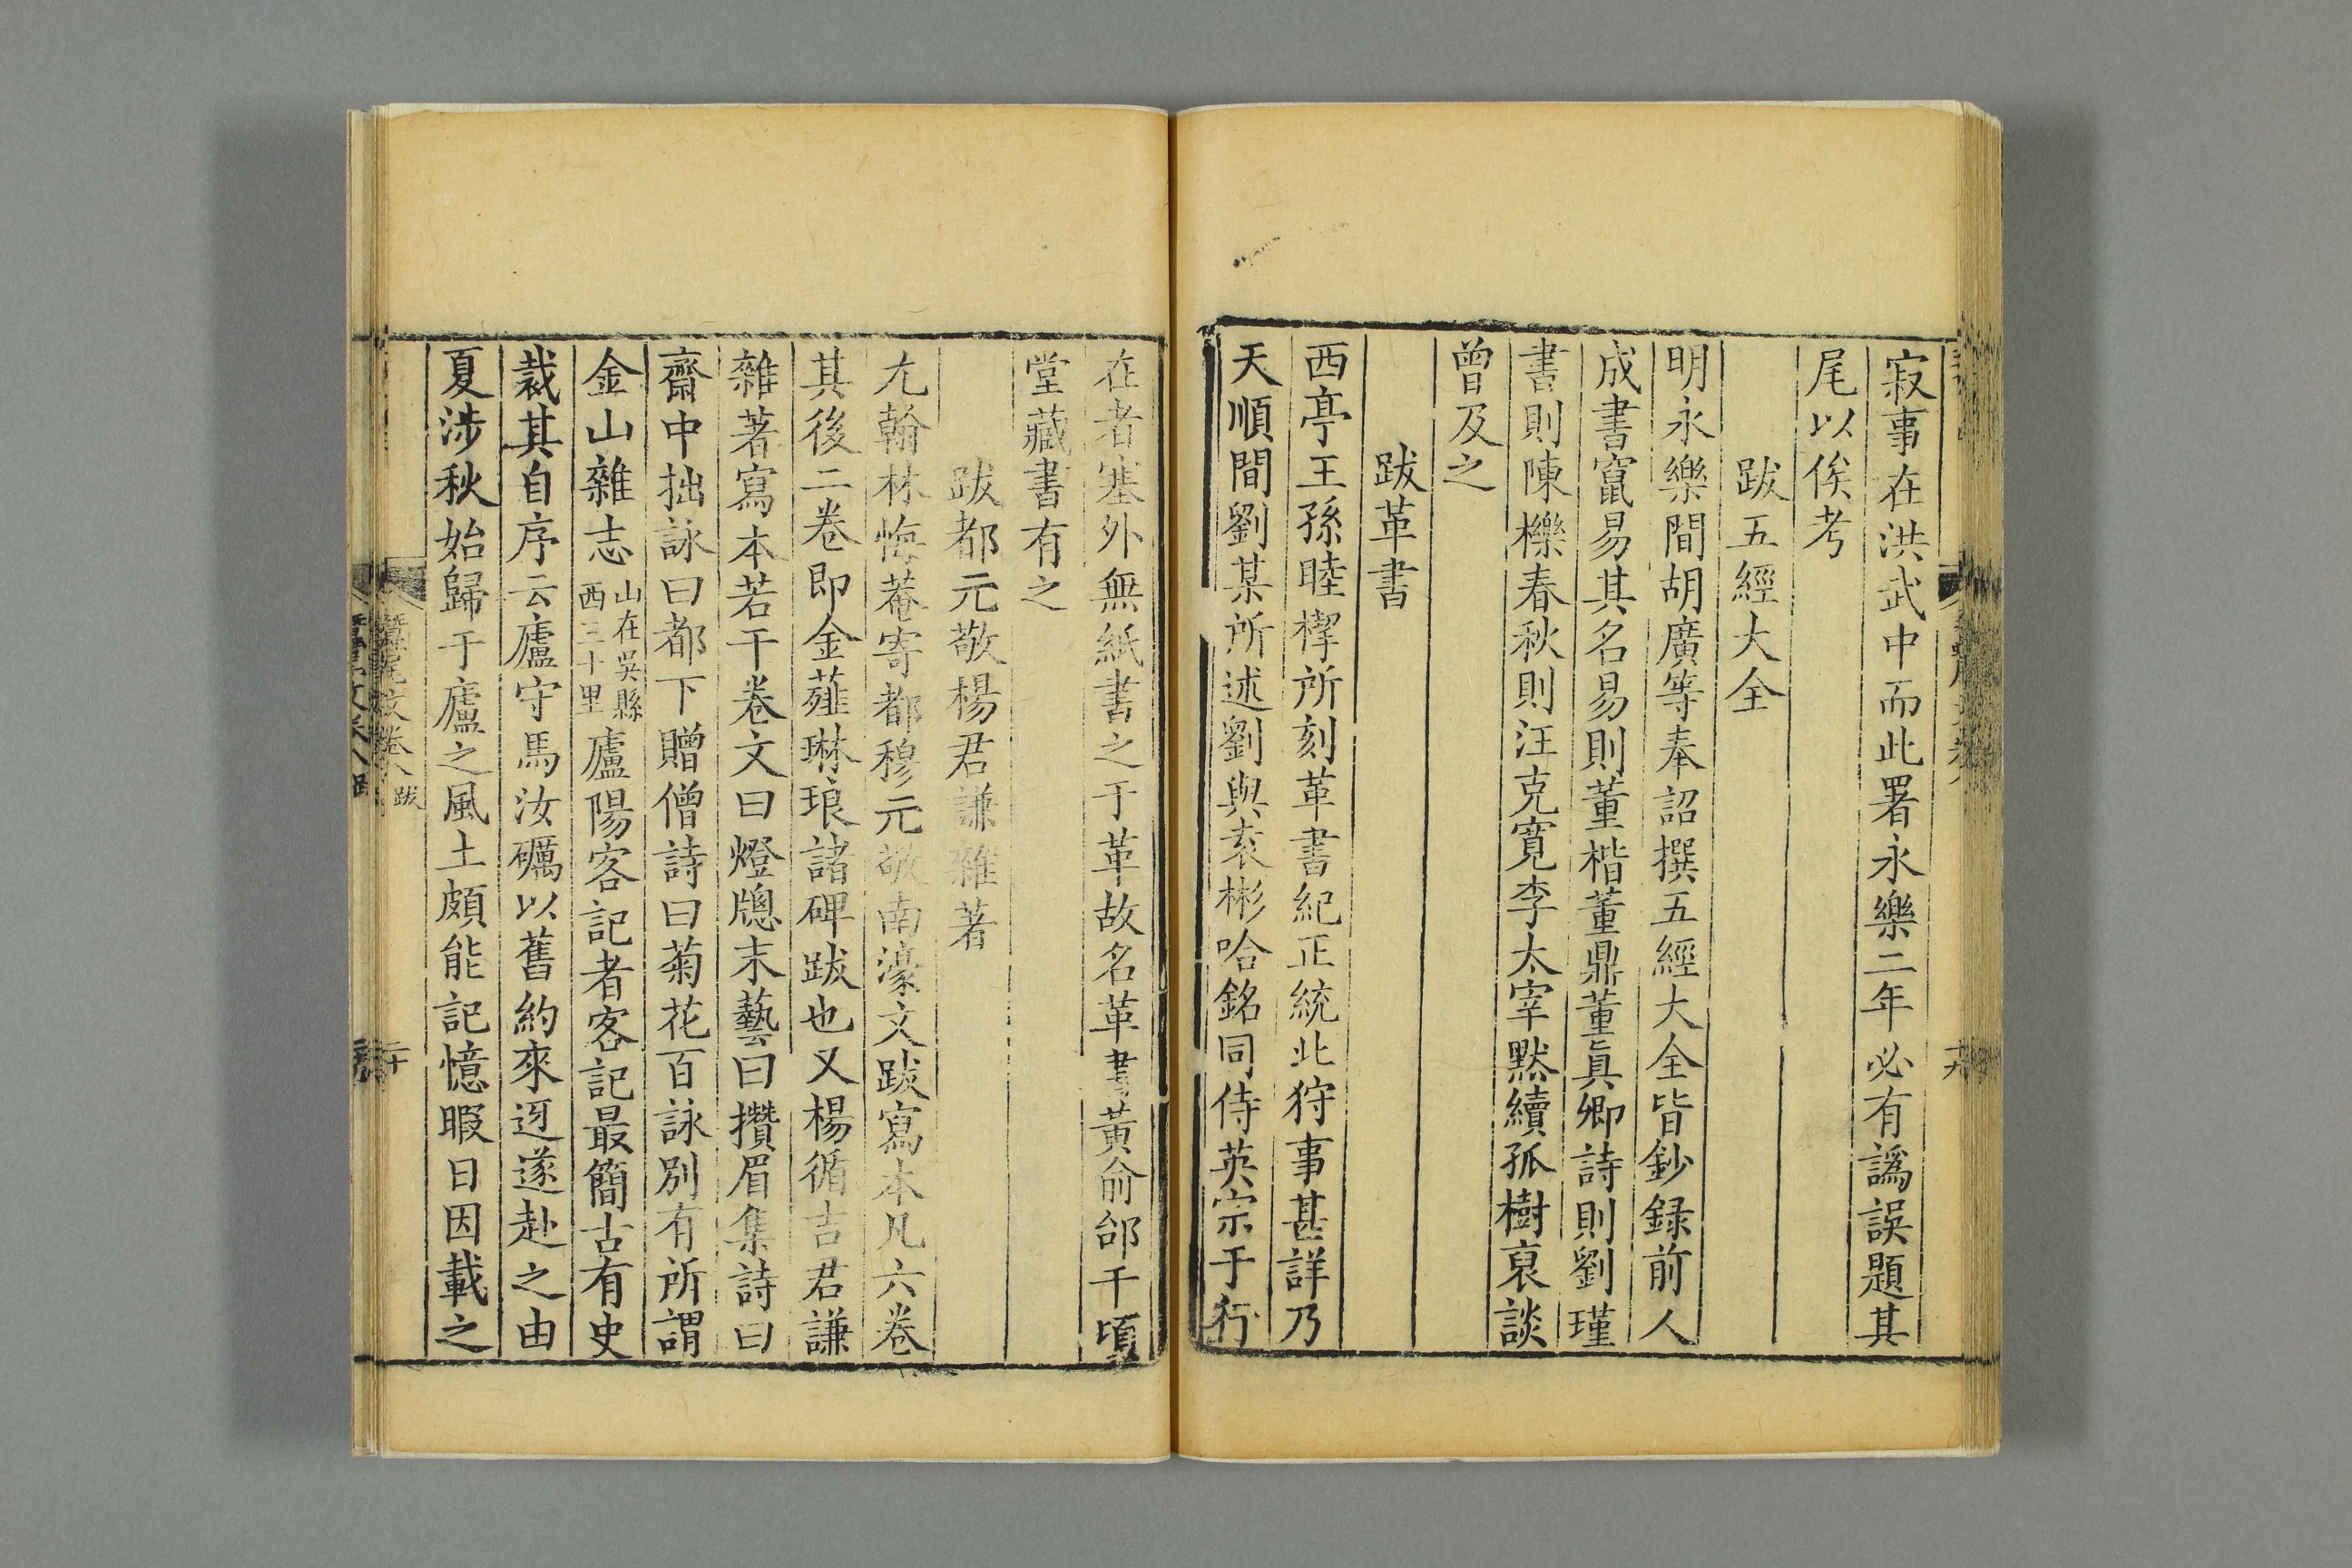 寂事在洪武中而此署永樂二年必有譌誤題其
尾以俟考
跋五經大全
明永樂間胡廣等奉詔撰五經大全皆鈔録前人
成書竄易其名易則董楷董鼎董眞卿詩則劉瑾
書則陳櫟春秋則汪克寛李太宰默續孤樹裒談
曾及之
跋革書
西亭王孫睦㮮所刻革書紀正統北狩事甚詳乃
天順間劉某所述劉與袁彬哈銘同侍英宗于行
在者塞外無紙書之于革故名革書黄俞邰千頃
堂藏書有之
跋都元敬楊君謙雜著
尤翰林悔菴寄都穆元敬南濠文跋寫本凡六卷
其後二卷即金薤琳琅諸碑跋也又楊循吉君謙
雜著寫本若干卷文曰燈牕末藝曰攢眉集詩曰
齋中拙詠曰都下贈僧詩曰菊花百詠別有所謂
金山雜志山在吳縣西三十里廬陽客記者客記最簡古有史
裁其自序云廬守馬汝礪以舊約來迓遂赴之由
夏涉秋始歸于廬之風土頗能記憶暇日因載之
蠶尾文卷八
跋
二十